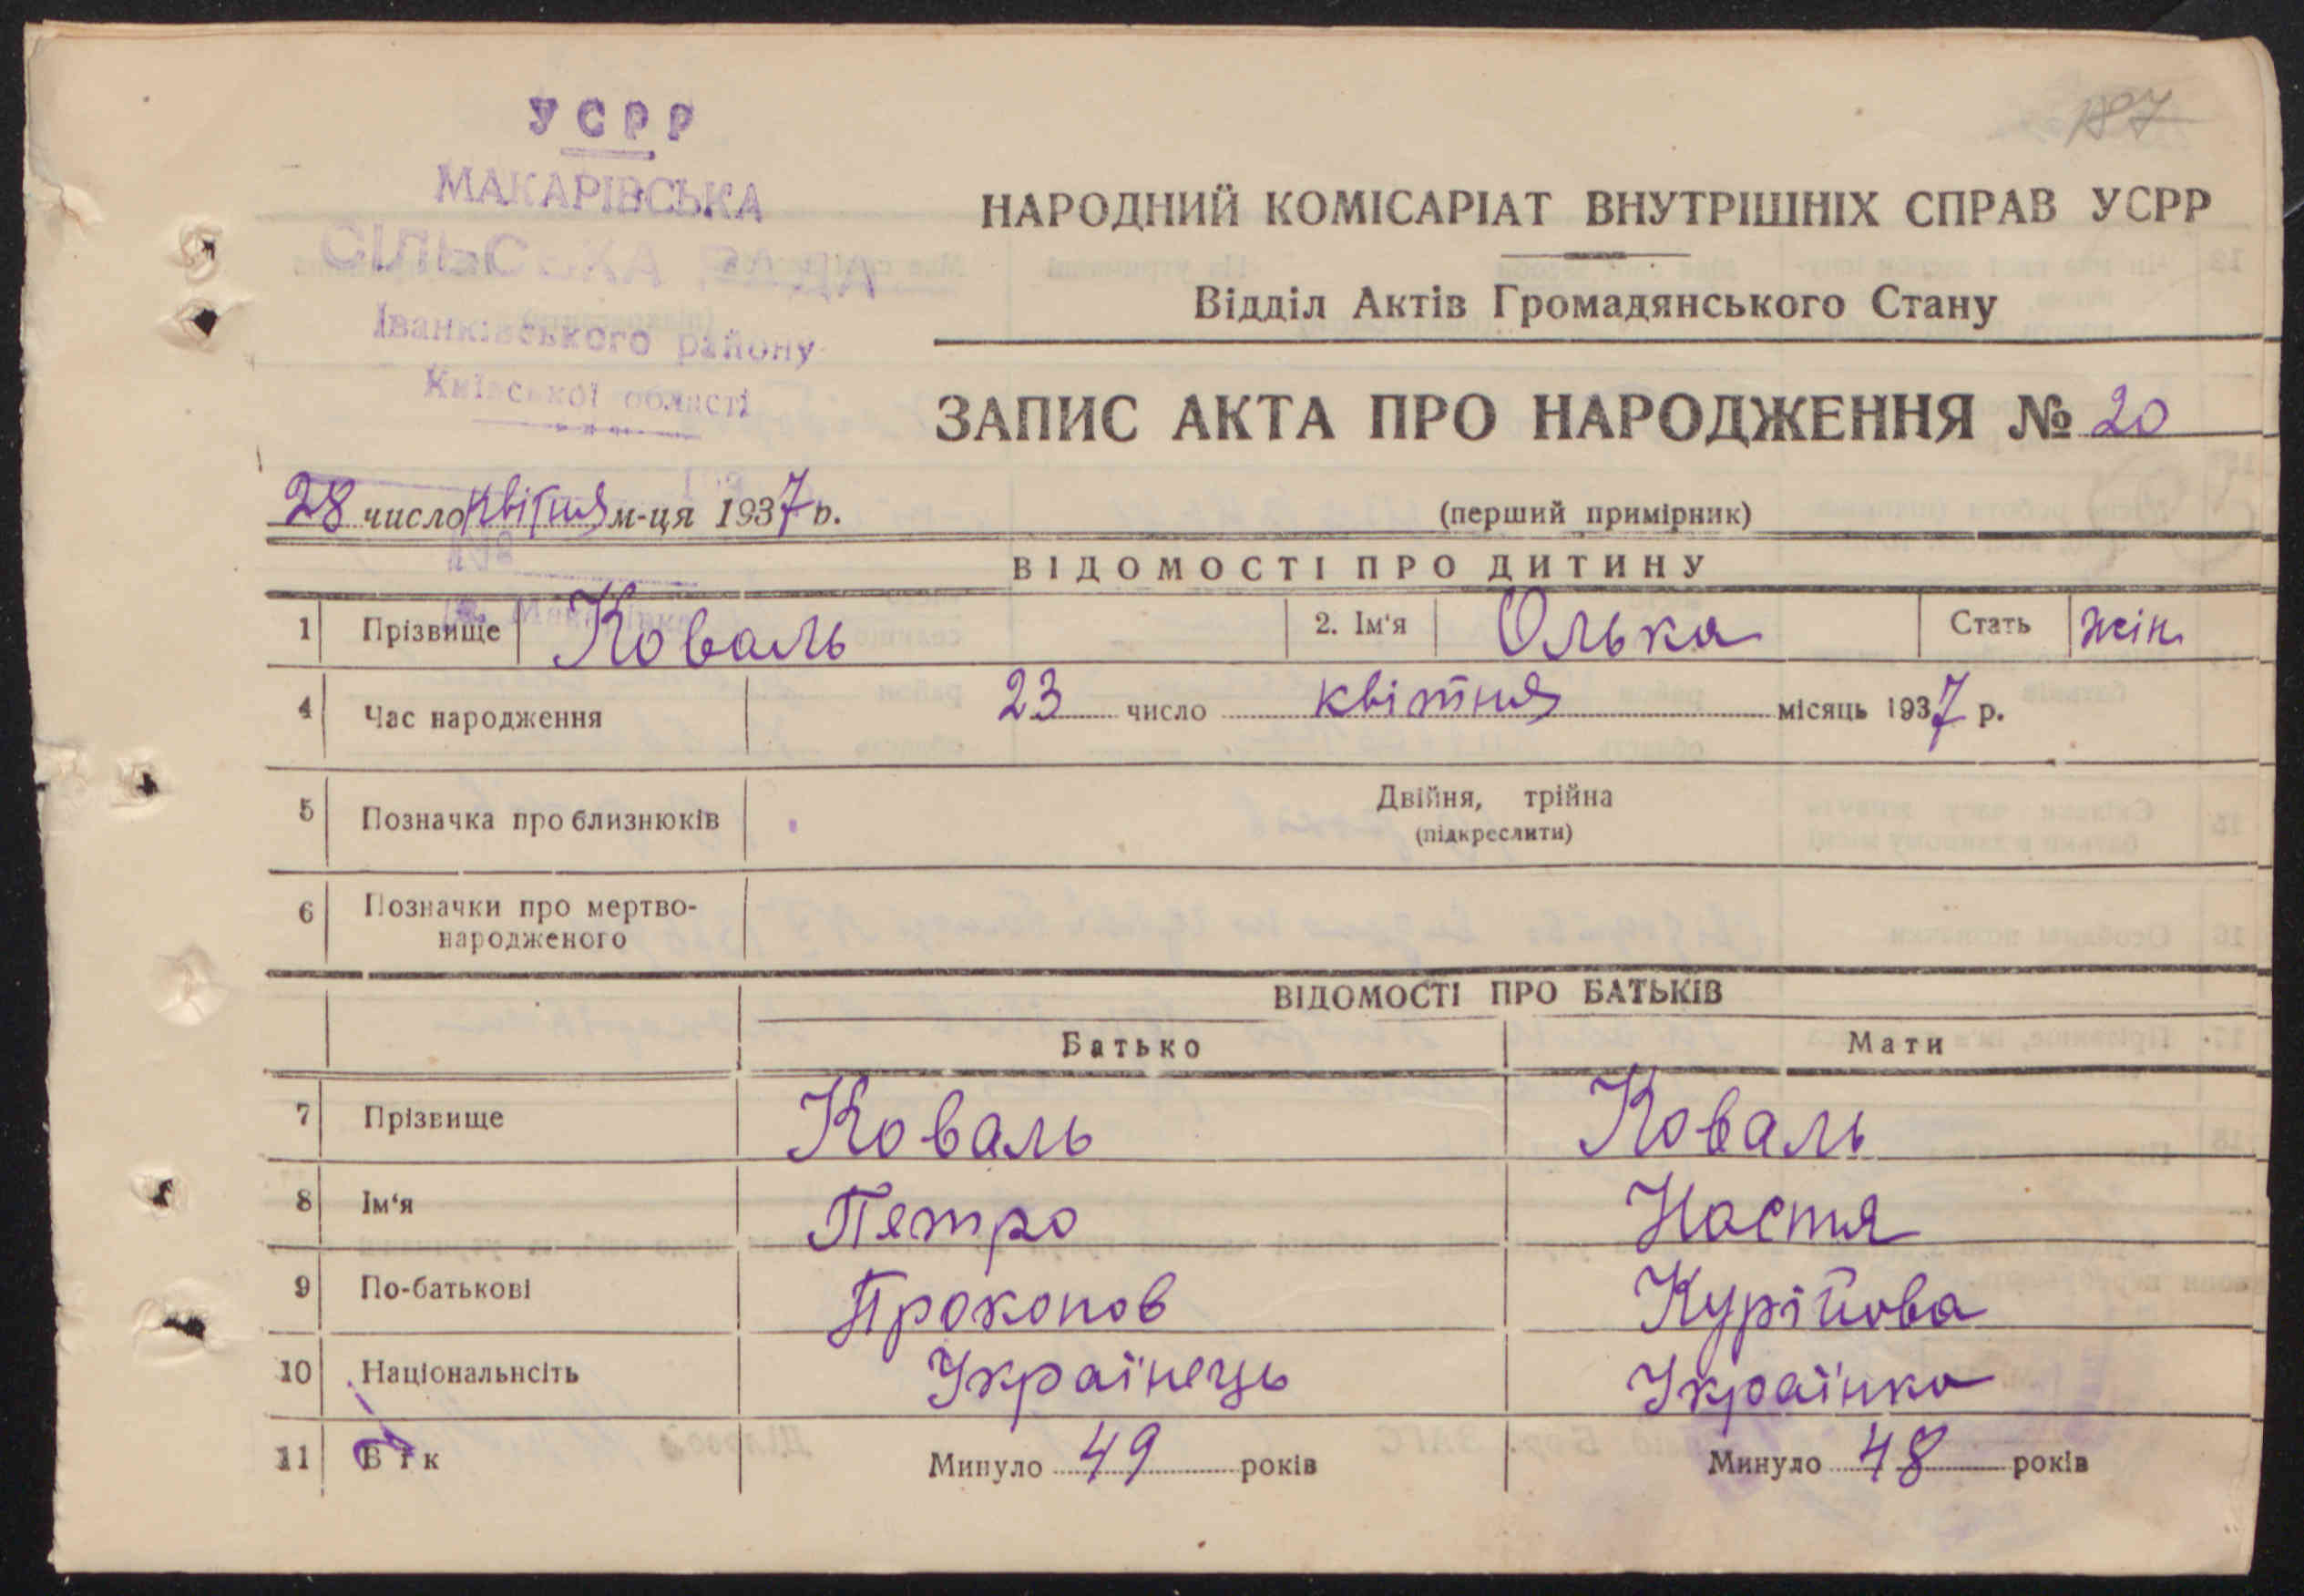 187
УСРР
МАКАРІВСЬКА
СІЛЬСЬКА РАДА
Іванківського району
Київської області
НАРОДНИЙ КОМІСАРІАТ ВНУТРІШНІХ СПРАВ УСРР
Відділ Актів Громадянського Стану
ЗАПИС АКТА ПРО НАРОДЖЕННЯ № 20
28 число квітня м-ця 1937 р.
(перший примірник)
№
ВІДОМОСТІ ПРО ДИТИНУ
с. Макарівка
1 Прізвище Коваль 2. Ім'я Олька Стать жін.
4 Час народження 23 число квітня місяць 1937 р.
5 Позначка про близнюків Двійня, трійна
(підкреслити)
6 Позначки про мертво-
народженого
ВІДОМОСТІ ПРО БАТЬКІВ
Батько Мати
7 Прізвище Коваль Коваль
8 Ім'я Петро Настя
9 По-батькові Прокопов Курійова
10 Національнсіть Українець Українка
11 Вік Минуло 49 років Минуло 48 років